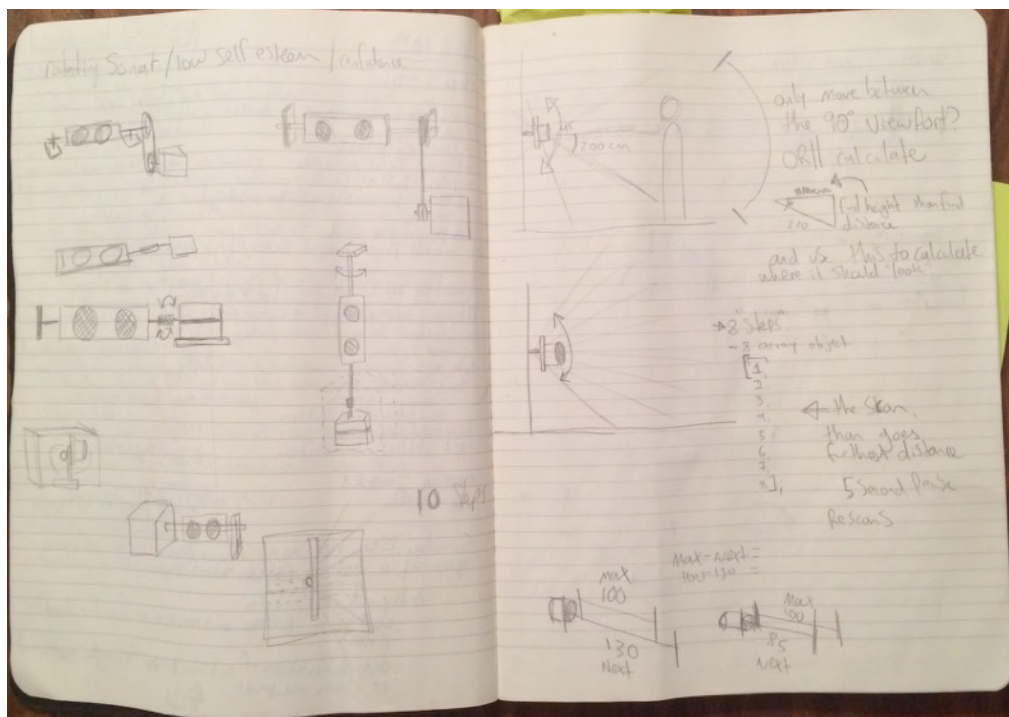 rotating Sonar / low self esteem / confidence
10 Steps
200cm
only move between
the 90° viewport?
OR!! calculate
find height than find
distance
and use this to calculate
where it should "look"
8 "steps"
- 8 array object
[1,
2
3,
4,
5
6,
7,
8],
← the scan,
than goes
furthest distance
5 second pause
Rescans
Max - Next =
100-130 =
max
100
130
Next
Max
100
85
Next